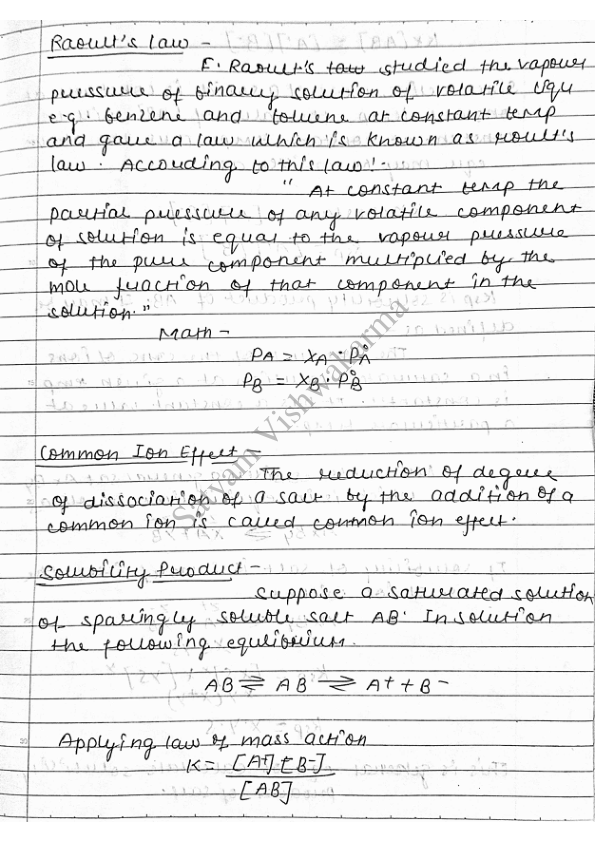 Raoult's law -
F. Raoult's law studied the vapour
pressure of binary solution of volatile liqu
e.g. benzene and toluene at constant temp
and gave a law which is known as roult's
law. According to this law!-
" At constant temp the
partial pressure of any volatile component
of solution is equal to the vapour pressure
of the pure component multiplied by the
mole fraction of that component in the
solution."
Math -
PA = XA · P°A
PB = XB · P°B
Common Ion Effect -
The reduction of degree
of dissociation of a salt by the addition of a
common ion is called common ion effect.
Solubility Product -
Suppose a saturated solution
of sparingly soluble salt AB. In solution
the following equlibrium.
AB ⇌ AB ⇌ A+ + B-
Applying law of mass action
K = [A+]·[B-]
[AB]
Satyam Vishwakarma